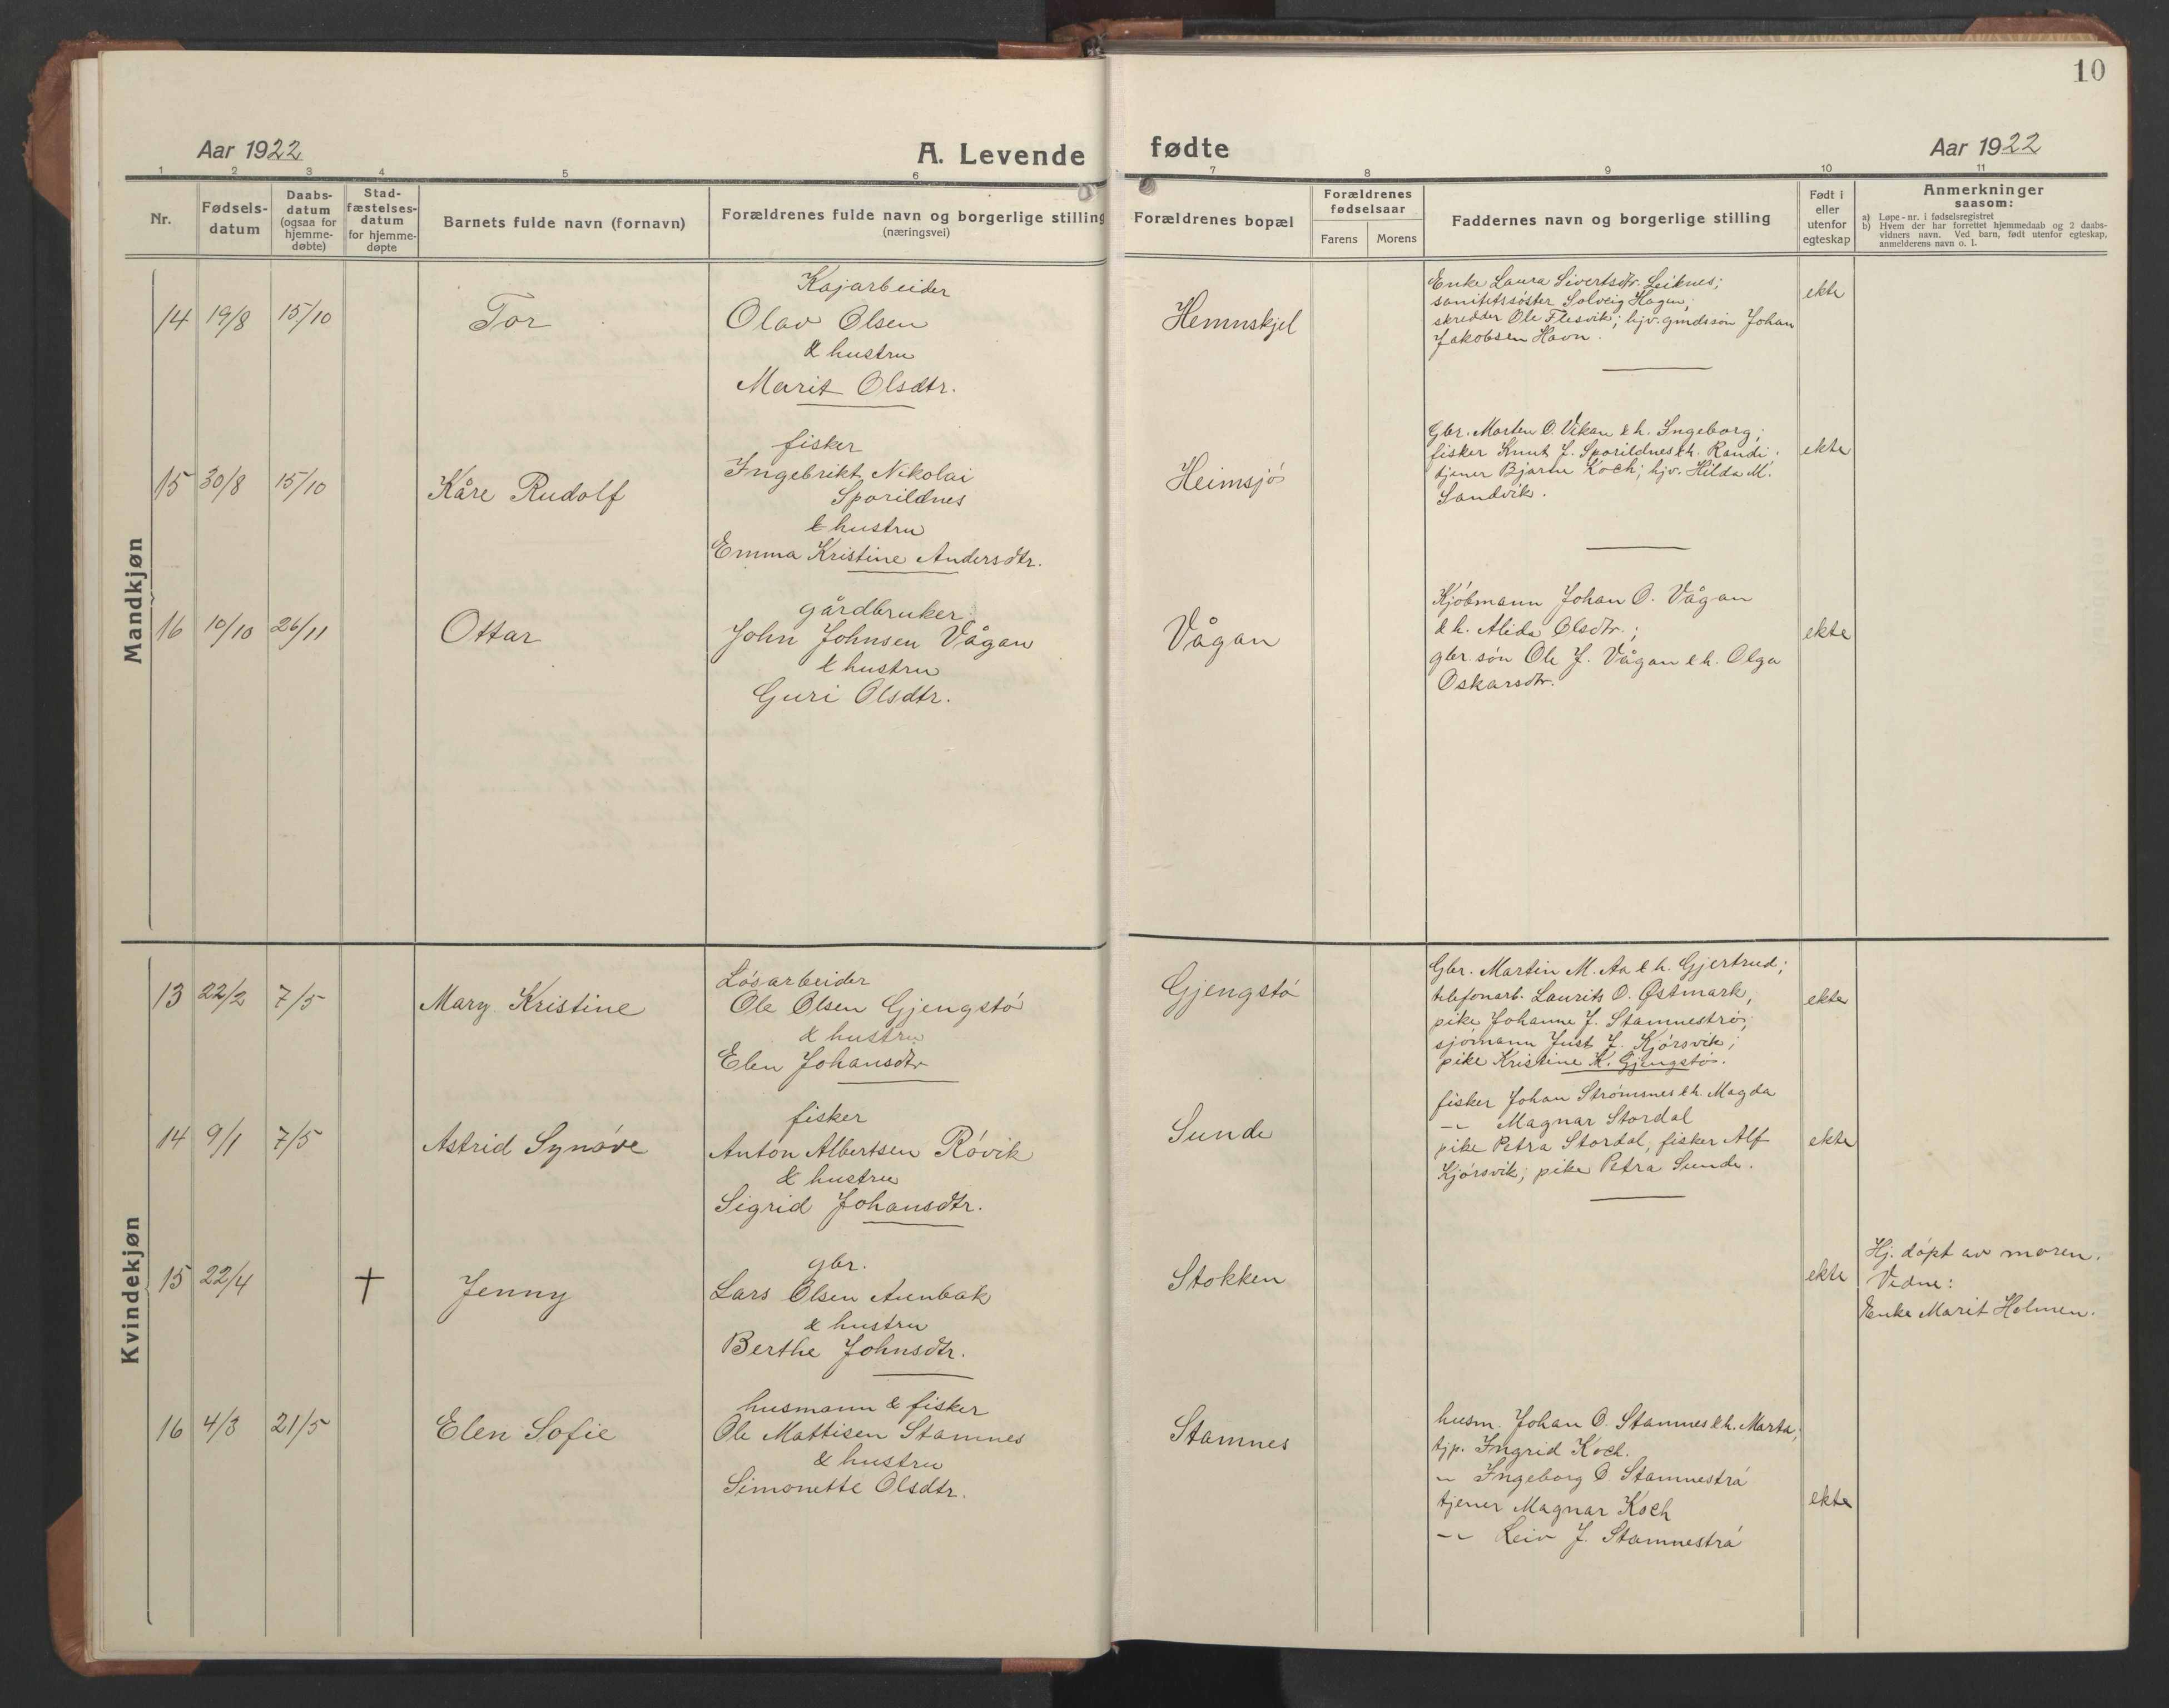 10
Aar 1922
A. Levende fødte
Aar 1922
1 2 3 4 5 6 7 8 9 10 11
Nr.
Fødsels-
datum
Daabs-
datum
(ogsaa for
hjemme-
døbte)
Stad-
fæstelses-
datum
for hjemme-
døpte
Barnets fulde navn (fornavn)
Forældrenes fulde navn og borgerlige stilling
(næringsvei)
Forældrenes bopæl
Forældrenes
fødselsaar
Farens
Morens
Faddernes navn og borgerlige stilling
Født i
eller
utenfor
egteskap
Anmerkninger
saasom:
a) Løpe-nr. i fødselsregistret
b) Hvem der har forrettet hjemmedaab og 2 daabs-
vidners navn. Ved barn, født utenfor egteskap,
anmelderens navn o. l.
Mandkjøn
14 19/8 15/10
Tor
Kajarbeider
Olav Olsen
& hustru
Marit Olsdtr.
Hemnskjel
Enke Laura Sivertsdtr. Leiknes;
sanitetssöster Solveig Hagen;
skredder Ole Flesvik; hjv. gmdssön Johan
Jakobsen Havn.
ekte
15 30/8 15/10
Kåre Rudolf
fisker
Ingebrikt Nikolai
Sporildnes
& hustru
Emma Kristine Andersdtr.
Heimsjö
Gbr. Morten O. Vikan & h. Ingeborg;
fisker Knut J. Sporildnes & h. Randi;
tjener Bjarne Koch; hjv. Hilda M.
Sandvik.
ekte
16 10/10 26/11
Ottar
gårdbruker
John Johnsen Vågan
& hustru
Guri Olsdtr.
Vågan
Kjöbmann Johan O. Vågan
& h. Alida Olsdtr.;
gbr. sön Ole J. Vågan & h. Olga
Oskarsdtr.
ekte
Kvindekjøn
13 22/2 7/5
Mary Kristine
Lösarbeider
Ole Olsen Gjengstö
& hustru
Elen Johansdtr
Gjengstö
Gbr. Martin M. Aa & h. Gjertrud;
telefonarb. Laurits O. Østmark;
pike Johanne J. Stamneströ;
sjömann Just J. Kjörsvik;
pike Kristine K. Gjengstö.
ekte
14 9/1 7/5
Astrid Synöve
fisker
Anton Albertsen Rövik
& hustru
Sigrid Johansdtr.
Sunde
fisker Johan Strömsnes & h. Magda
-"- Magnar Stordal
pike Petra Stordal, fisker Alf
Kjörsvik; pike Petra Sunde.
ekte
15 22/4
†
Jenny
gbr.
Lars Olsen Aunbak
& hustru
Berthe Johnsdtr.
Stokken
ekte
Hj. döpt av moren.
Vidne:
Enke Marit Holmen.
16 4/3 21/5
Elen Sofie
husmann & fisker
Ole Mattisen Stamnes
& hustru
Simonette Olsdtr.
Stamnes
husm. Johan O. Stamnes & h. Marta;
tjp. Ingrid Koch.
-"- Ingeborg O. Stamnestrá
tjener Magnar Koch
-"- Leiv J. Stamnestrá
ekte